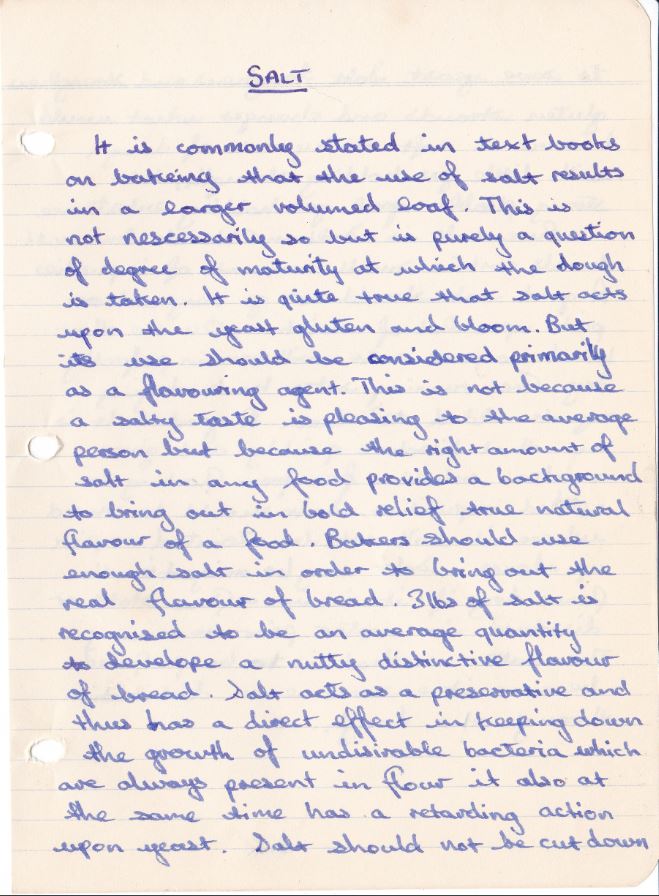 SALT
It is commonly stated in text books
on bakeing that the use of salt results
in a larger volumed loaf. This is
not nescessarily so but is purely a question
of degree of maturity at which the dough
is taken. It is quite true that salt acts
upon the yeast gluten and bloom. But
its use should be considered primarily
as a flavouring agent. This is not because
a salty taste is pleasing to the average
person but because the right amount of
salt in any food provides a background
to bring out in bold relief true natural
flavour of a food. Bakers should use
enough salt in order to bring out the
real flavour of bread. 3lbs of salt is
recognised to be an average quantity
to develope a nutty distinctive flavour
of bread. Salt acts as a preservative and
thus has a direct effect in keeping down
the growth of undisirable bacteria which
are always present in flour it also at
the same time has a retarding action
upon yeast. Salt should not be cut down